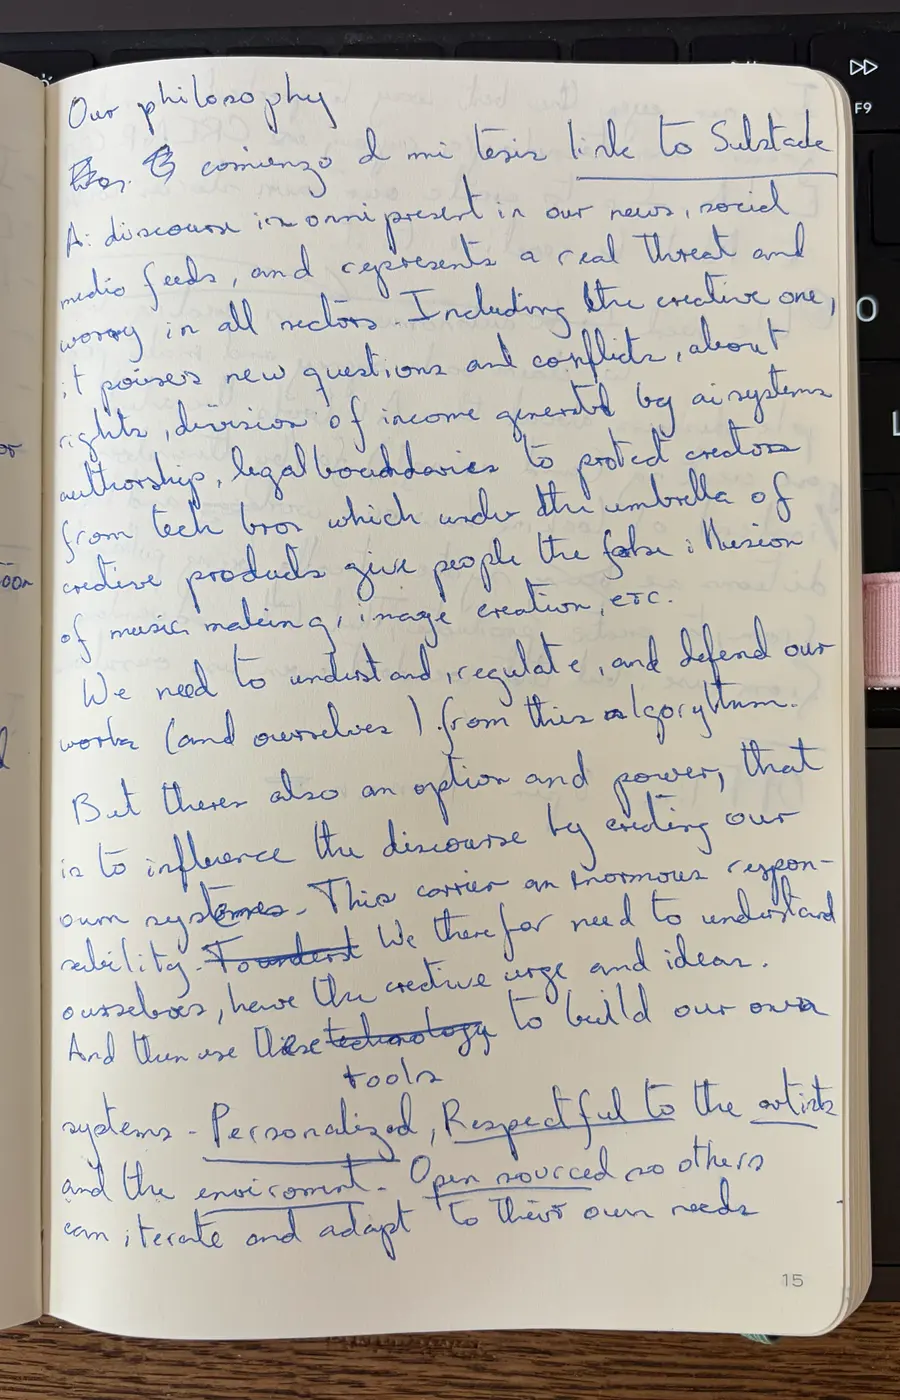 Our philosophy
comienzo d mi tesis link to Substack
A: discourse is omnipresent in our news, social
media feeds, and represents a real threat and
worry in all sectors. Including the creative one,
it poises new questions and conflicts, about
rights, division of income generated by ai systems
authorship, legal bouddaries to protect creators
from tech bros which under the umbrella of
creative products give people the false illusion
of music making, image creation, etc.
We need to understand, regulate, and defend our
works (and ourselves) from this algorythm.
But theres also an option and power, that
is to influence the discourse by creating our
own systems. This carries an enormous respon-
sability. To underst We therefor need to understand
ourselves, how the creative urge and ideas.
And then use these technology to build our own
tools
systems - Personalized, Respectful to the artists
and the enviroment. Open sourced so others
can iterate and adapt to their own needs
15
F9